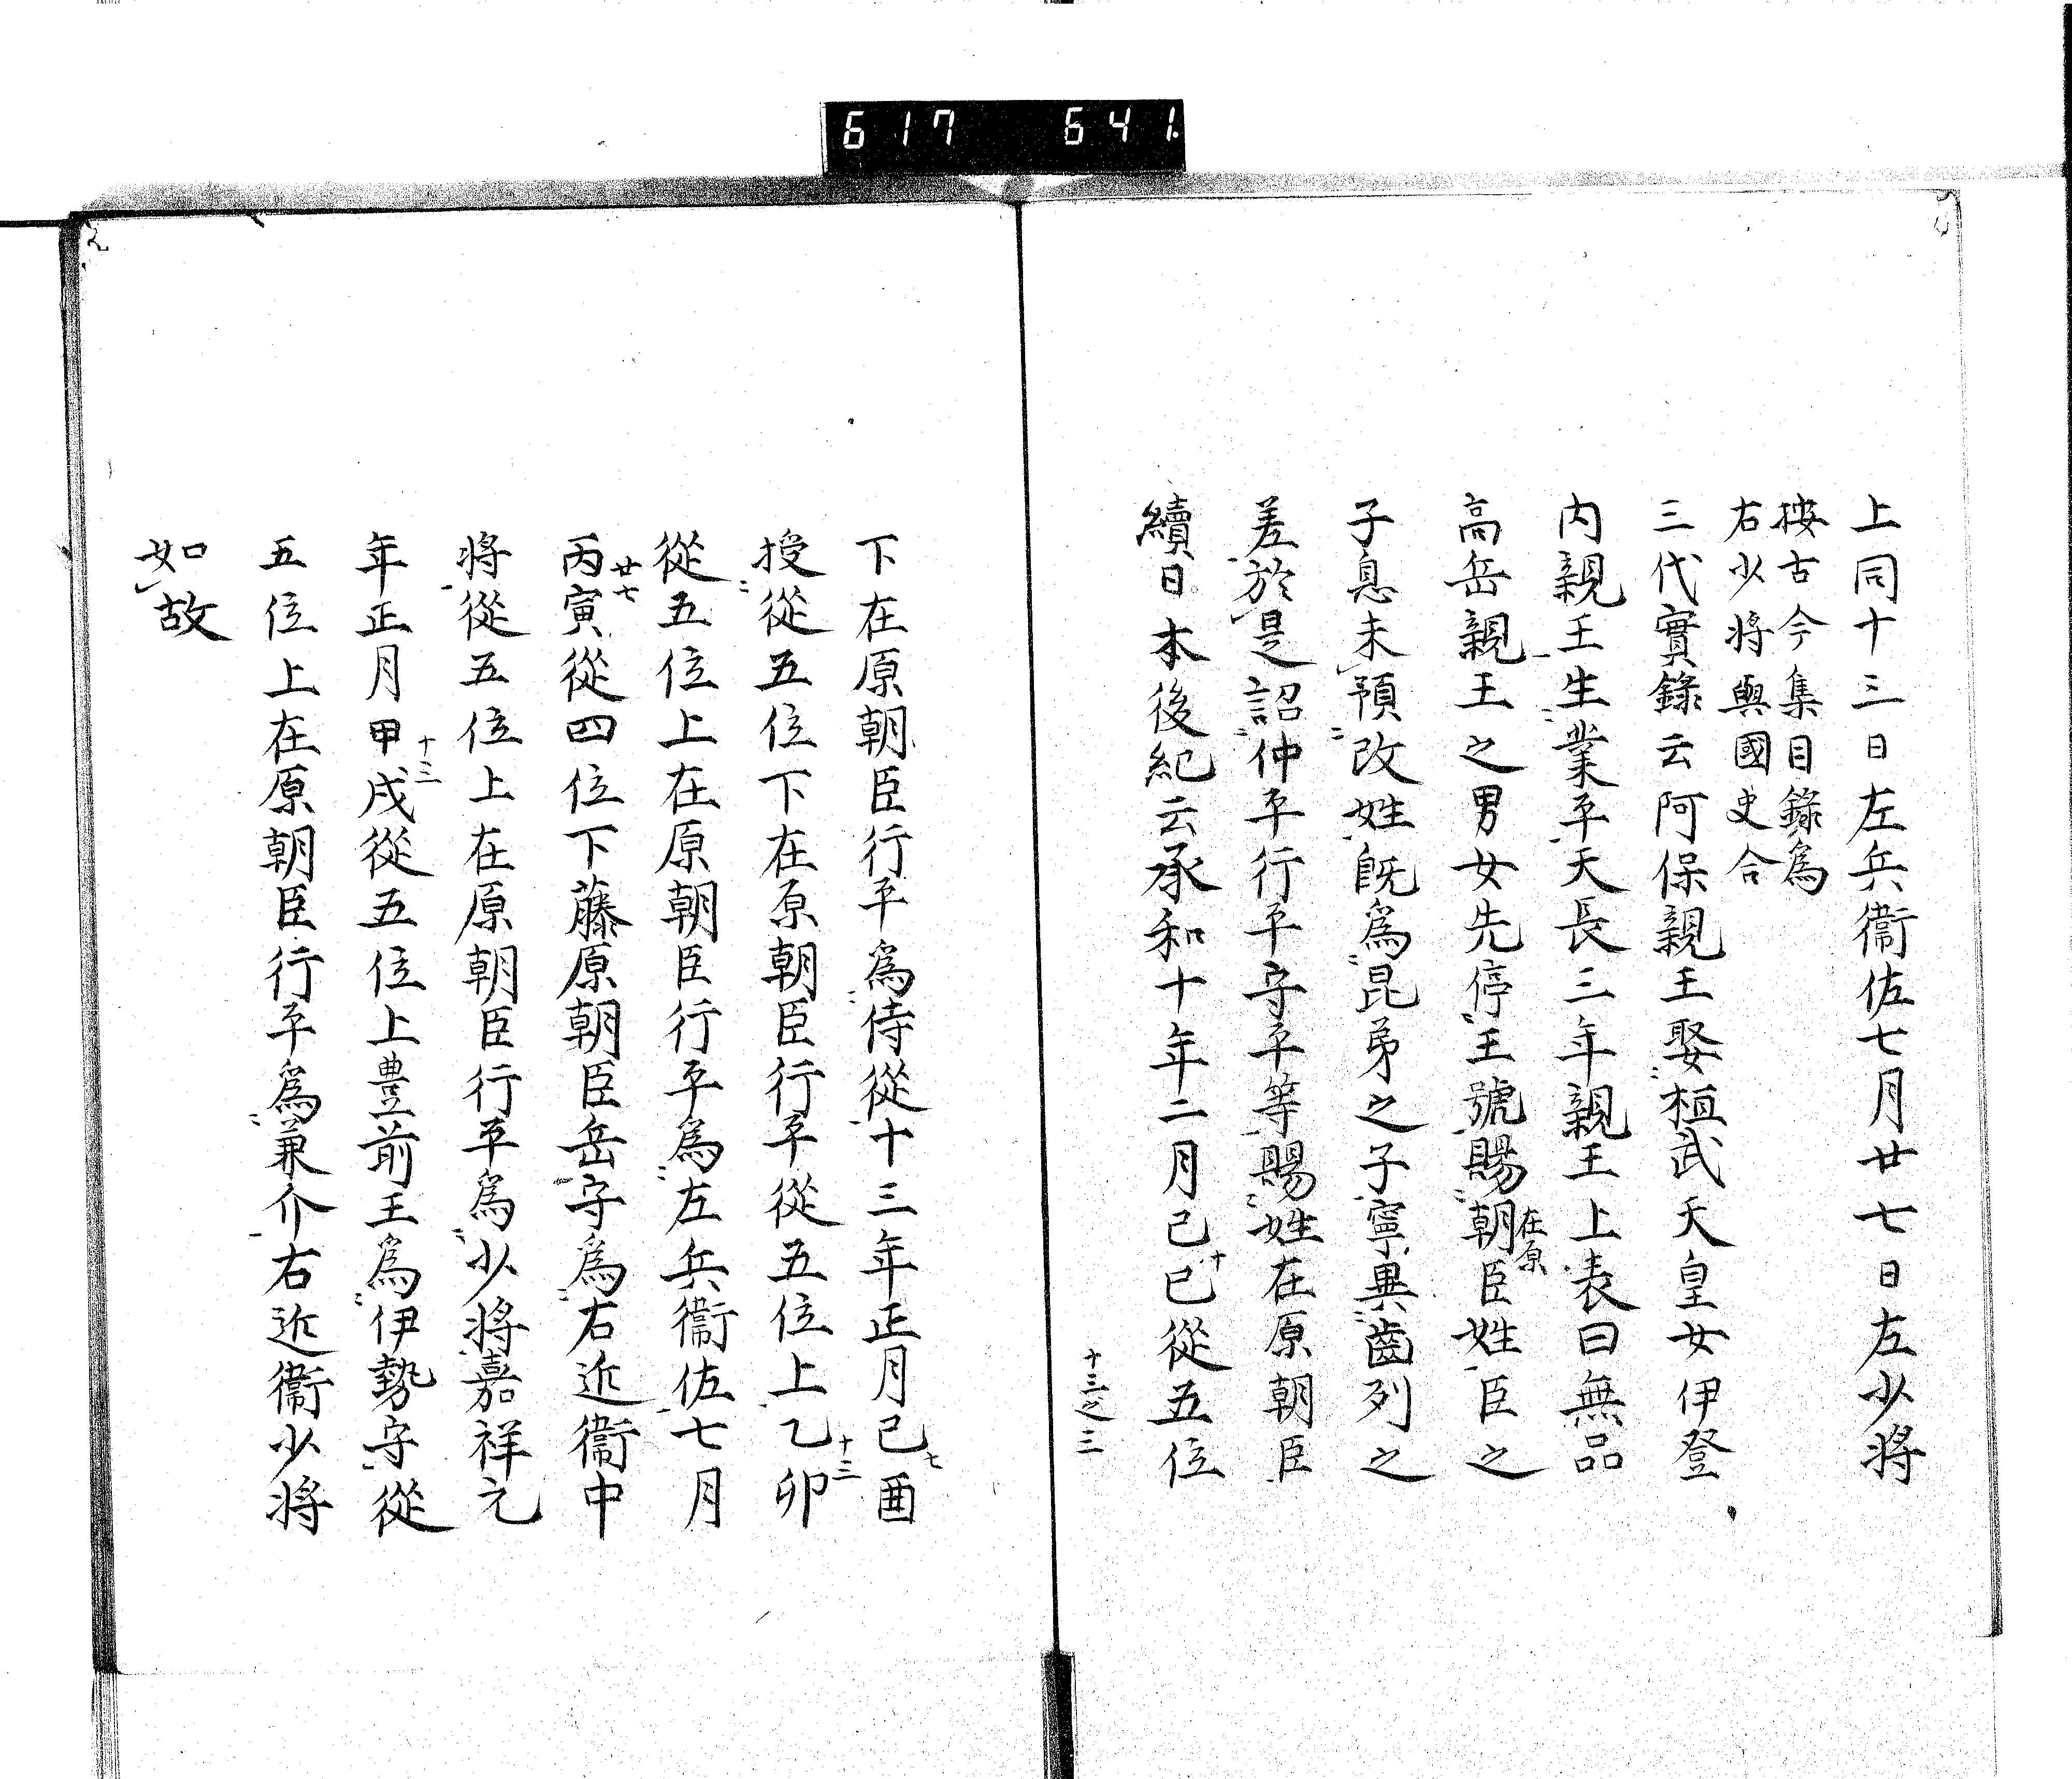 617 641
上同十三日左兵衞佐七月廿七日左少将
按古今集目錄爲
右少将與國史合
三代實錄云阿保親王娶桓武天皇女伊登
内親王生業平天長三年親王上表曰無品
高岳親王之男女先停王號賜朝臣姓臣之
在原
子息未預改姓旣爲昆弟之子寧異齒列之
差於是詔仲平行平守平等賜姓在原朝臣
續日本後紀云承和十年二月己巳從五位
十
十三之三
下在原朝臣行平爲侍從十三年正月己酉
七
授從五位下在原朝臣行平從五位上乙卯
十三
從五位上在原朝臣行平爲左兵衞佐七月
丙寅從四位下藤原朝臣岳守爲右近衞中
廿七
将從五位上在原朝臣行平爲少将嘉祥元
年正月甲戌從五位上豊前王爲伊勢守從
十三
五位上在原朝臣行平爲兼介右近衞少将
如故